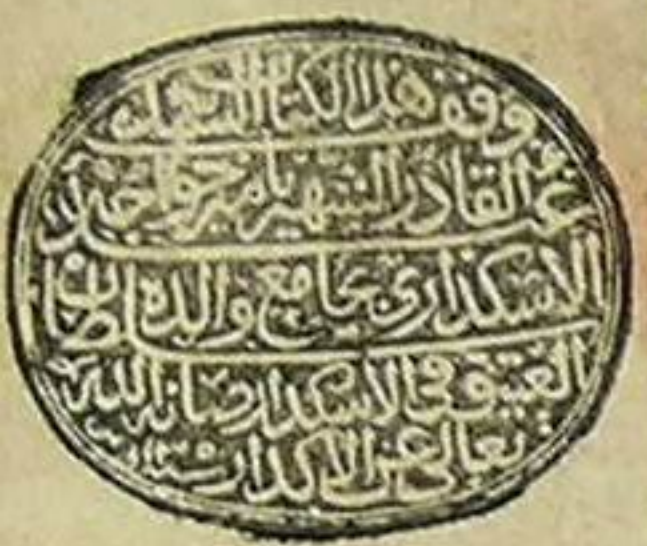 وقف هذا الكتاب الشيخ
عبد القادر الشهير بامير خواجه
الاسكداري بجامع والده سلطان
العتيق في الاسكدار صانه الله
تعالى عن الاكدار